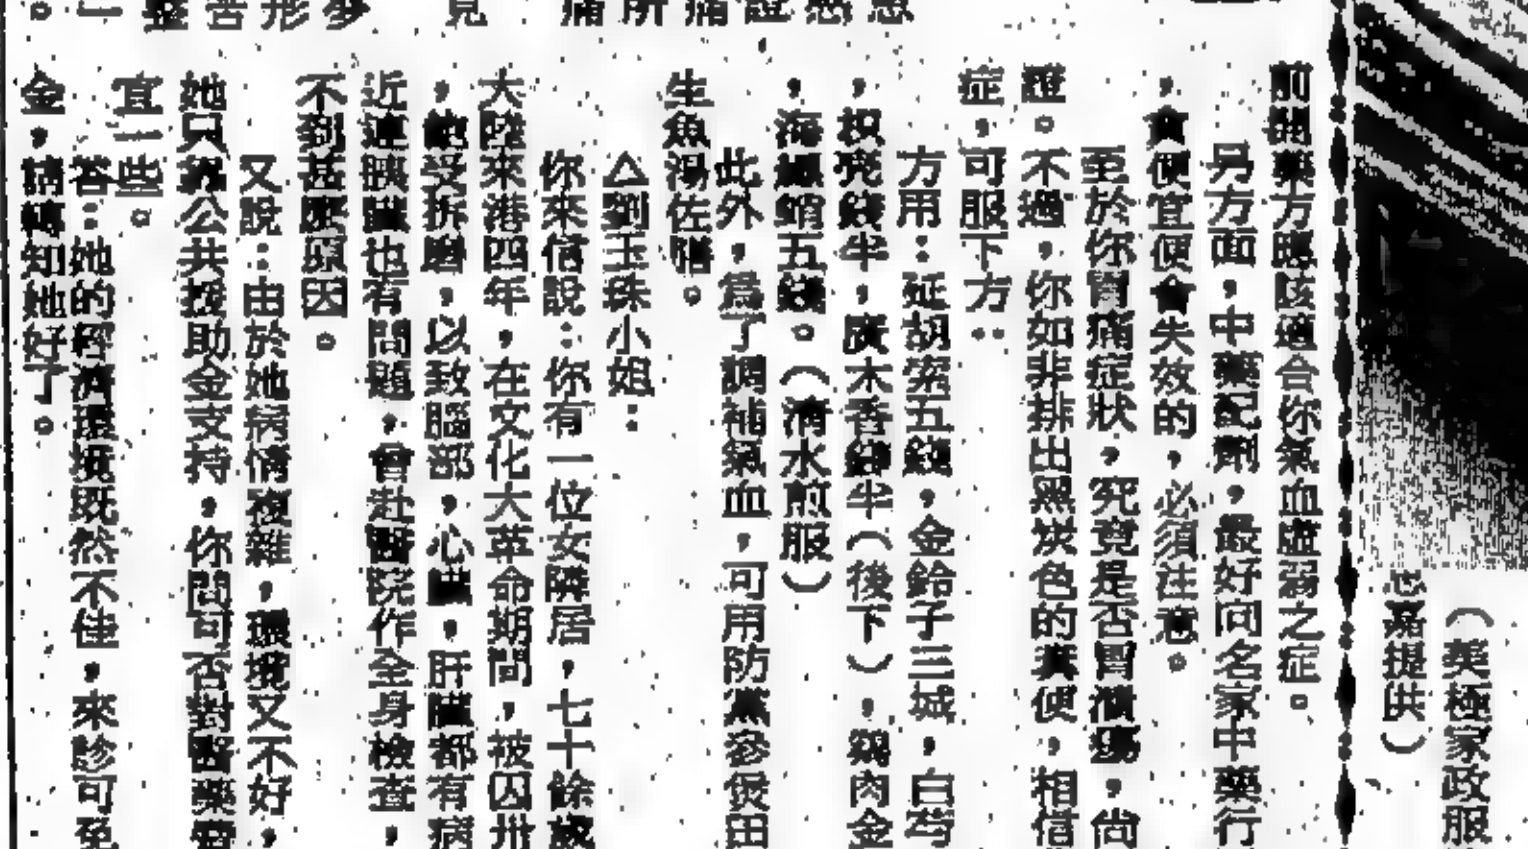 （美極家政服
嘉提供）
前開藥方應該適合你氣血虛弱之症。
另方面，中藥配劑，最好同名家中藥行
，貪便宜便會失效的，必須注意。
至於你胃痛症狀，究竟是否胃潰瘍，尚
證。不過，你如非排出黑炭色的糞便，相信
症，可服下方：
方用：延胡索五錢，金鈴子三城，白芍
，枳壳錢半，廣木香錢半（後下），雞肉金
，海螵蛸五錢。（清水煎服）
此外，爲了調補氣血，可用防黨參煲田
生魚湯佐膳。
△劉玉珠小姐：
你來信說：你有一位女隣居，七十餘歲
大陸來港四年，在文化大革命期間，被囚卅
，飽受拆磨，以致腦部，心臟，肝臟都有病
近連胰臟也有問題，曾赴醫院作全身檢查，
不到甚麼原因。
又說：由於她病情複雜，環境又不好，
她只靠公共援助金支持，你問可否對醫藥費
宜一些。
答：她的經濟環境既然不佳，來診可免
金，請轉知她好了。